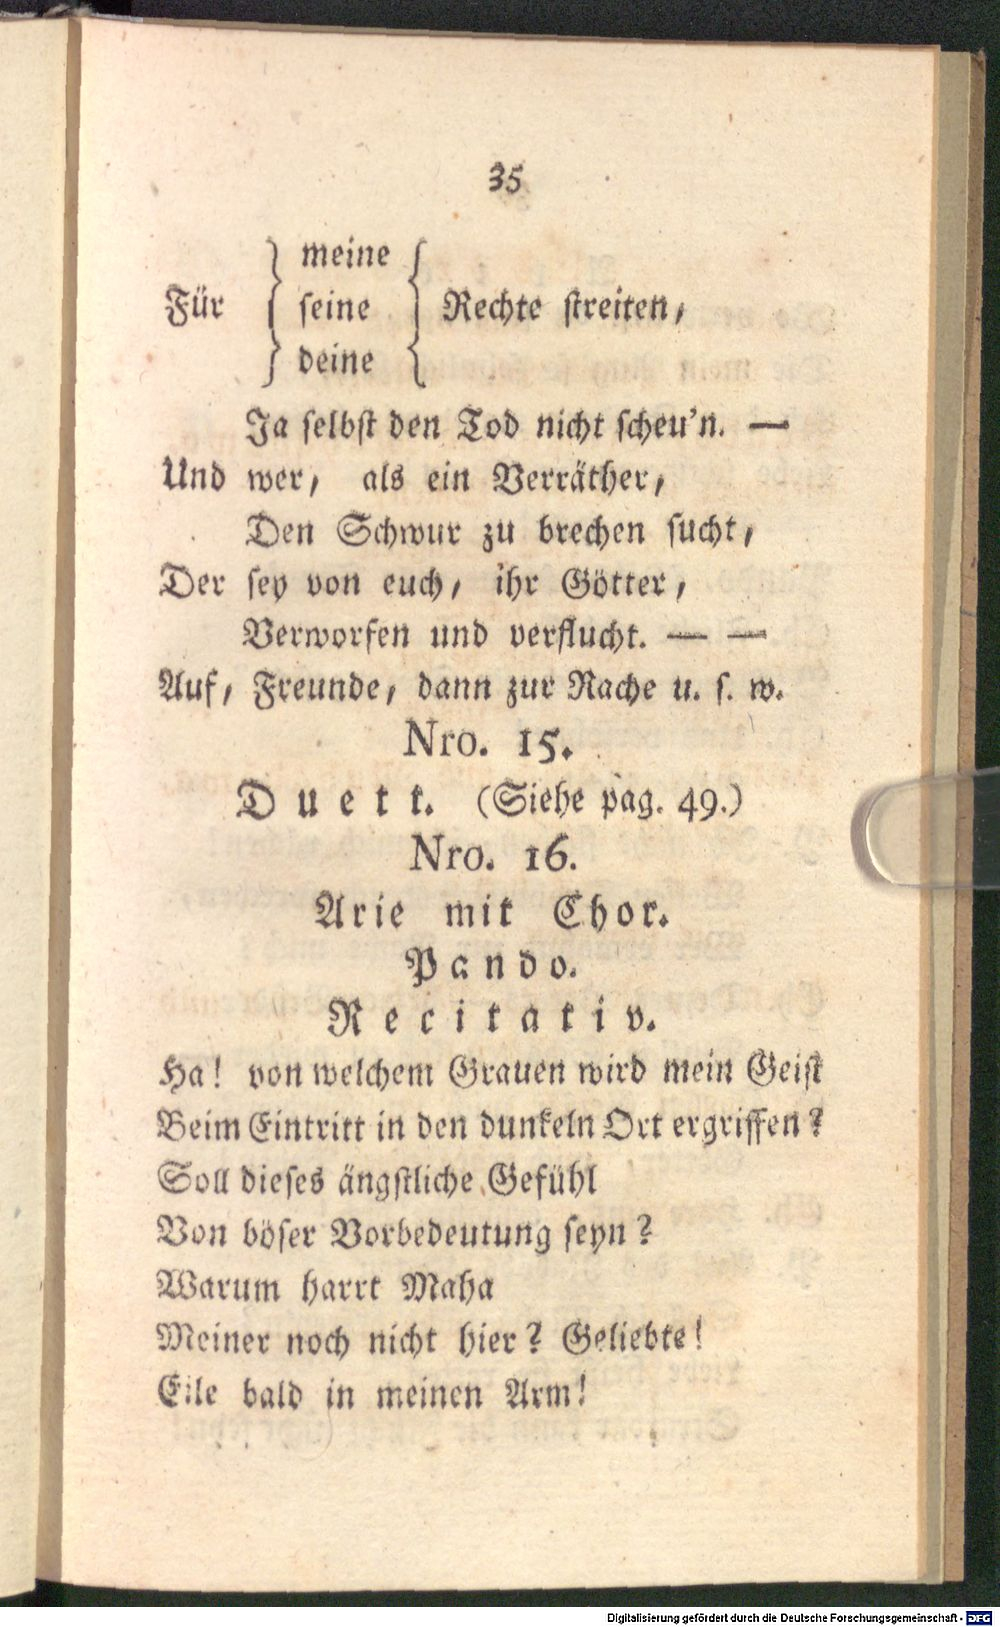 35
meine
Für } seine { Rechte streiten,
deine
Ja selbst den Tod nicht scheu'n. —
Und wer, als ein Verräther,
Den Schwur zu brechen sucht,
Der sey von euch, ihr Götter,
Verworfen und verflucht. — —
Auf, Freunde, dann zur Rache u. s. w.
Nro. 15.
Duett. (Siehe pag. 49.)
Nro. 16.
Arie mit Chor.
Pando.
Recitativ.
Ha! von welchem Grauen wird mein Geist
Beim Eintritt in den dunkeln Ort ergriffen?
Soll dieses ängstliche Gefühl
Von böser Vorbedeutung seyn?
Warum harrt Maha
Meiner noch nicht hier? Geliebte!
Eile bald in meinen Arm!
Digitalisierung gefördert durch die Deutsche Forschungsgemeinschaft - DFG